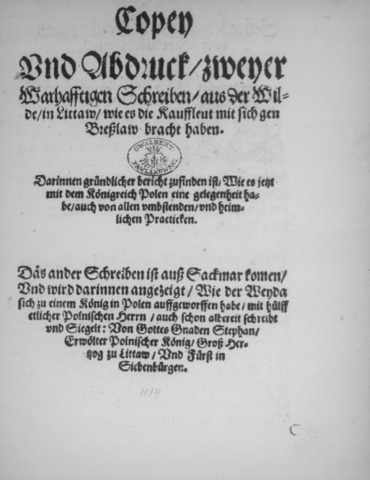 Copey
Vnd Abdruck/zweyer
Warhafftigen Schreiben/aus der Wil-
de/in Littaw/wie es die Kauffleut mit sich gen
Breßlaw bracht haben.
GWALBERT
PAWLIKOWSKI
Darinnen gründlicher bericht zufinden ist/Wie es jetzt
mit dem Königreich Polen eine gelegenheit ha-
be/auch von allen vmbstenden/vnd heim-
lichen Practicken.
Das ander Schreiben ist auß Sackmar komen/
Vnd wird darinnen angezeigt/Wie der Weyda
sich zu einem König in Polen auffgeworffen habe/mit hülff
etlicher Polnischen Herrn/auch schon albereit schreibt
vnd Siegelt: Von Gottes Gnaden Stephan/
Erwölter Polnischer König/Groß Her-
tzog zu Littaw/Vnd Fürst in
Siebenbürgen.
C